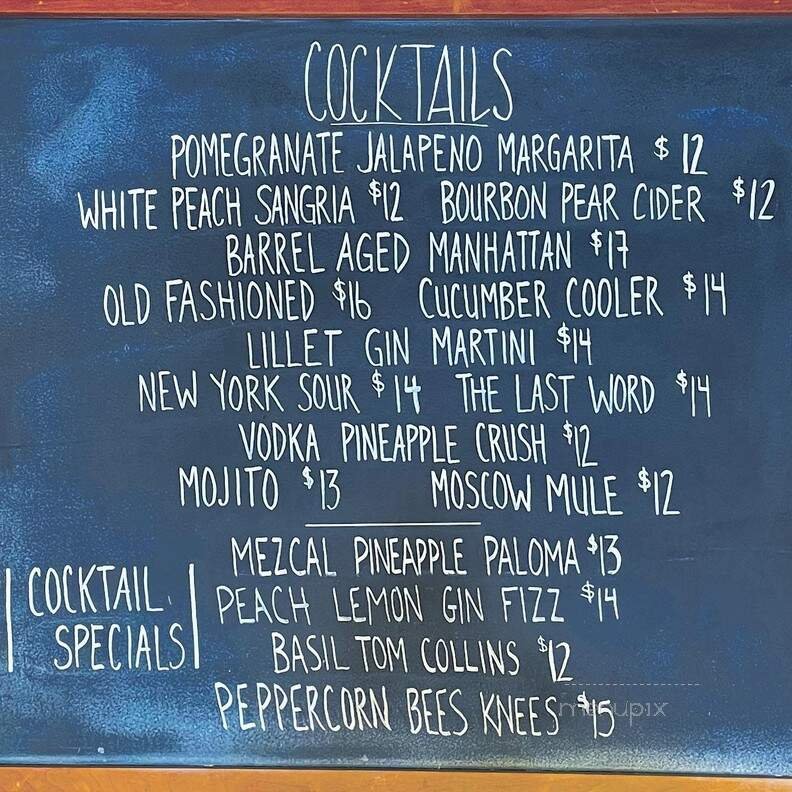 COCKTAILS
POMEGRANATE JALAPENO MARGARITA $12
WHITE PEACH SANGRIA $12 BOURBON PEAR CIDER $12
BARREL AGED MANHATTAN $17
OLD FASHIONED $16 CUCUMBER COOLER $14
LILLET GIN MARTINI $14
NEW YORK SOUR $14 THE LAST WORD $14
VODKA PINEAPPLE CRUSH $12
MOJITO $13 MOSCOW MULE $12
COCKTAIL SPECIALS
MEZCAL PINEAPPLE PALOMA $13
PEACH LEMON GIN FIZZ $14
BASIL TOM COLLINS $12
PEPPERCORN BEES KNEES $15
menupix